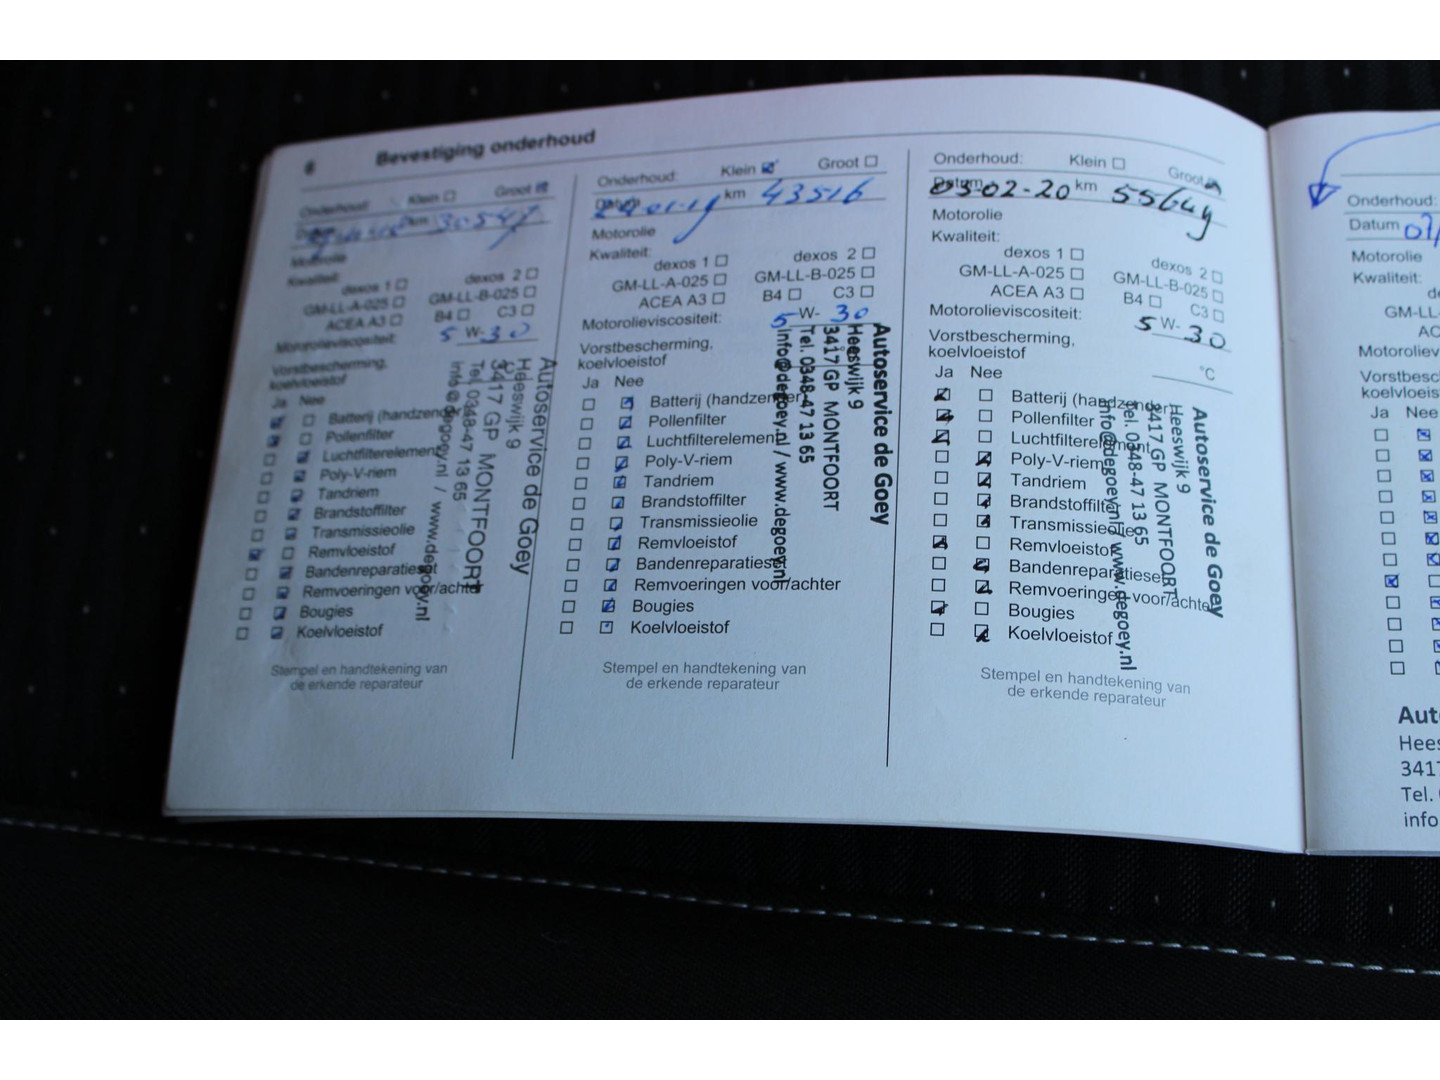 6 Bevestiging onderhoud
Onderhoud: Klein Groot
km 30547
Motorolie
Kwaliteit:
dexos 1 dexos 2
GM-LL-A-025 GM-LL-B-025
ACEA A3 B4 C3
Motorolieviscositeit: 5 W- 30
Vorstbescherming,
koelvloeistof
Ja Nee
Batterij (handzender)
Pollenfilter
Luchtfilterelement
Poly-V-riem
Tandriem
Brandstoffilter
Transmissieolie
Remvloeistof
Bandenreparatieset
Remvoeringen voor/achter
Bougies
Koelvloeistof
Autoservice de Goey
Heeswijk 9
3417 GP MONTFOORT
Tel. 0348-47 13 65
info@degoey.nl / www.degoey.nl
Stempel en handtekening van
de erkende reparateur
Onderhoud: Klein Groot
Datum 24-01-19 km 43516
Motorolie
Kwaliteit:
dexos 1 dexos 2
GM-LL-A-025 GM-LL-B-025
ACEA A3 B4 C3
Motorolieviscositeit: 5 W- 30
Vorstbescherming,
koelvloeistof
Ja Nee
Batterij (handzender)
Pollenfilter
Luchtfilterelement
Poly-V-riem
Tandriem
Brandstoffilter
Transmissieolie
Remvloeistof
Bandenreparatieset
Remvoeringen voor/achter
Bougies
Koelvloeistof
Autoservice de Goey
Heeswijk 9
3417 GP MONTFOORT
Tel. 0348-47 13 65
info@degoey.nl / www.degoey.nl
Stempel en handtekening van
de erkende reparateur
Onderhoud: Klein Groot
Datum 03-02-20 km 55649
Motorolie
Kwaliteit:
dexos 1 dexos 2
GM-LL-A-025 GM-LL-B-025
ACEA A3 B4 C3
Motorolieviscositeit: 5 W- 30
Vorstbescherming,
koelvloeistof °C
Ja Nee
Batterij (handzender)
Pollenfilter
Luchtfilterelement
Poly-V-riem
Tandriem
Brandstoffilter
Transmissieolie
Remvloeistof
Bandenreparatieset
Remvoeringen voor/achter
Bougies
Koelvloeistof
Autoservice de Goey
Heeswijk 9
3417 GP MONTFOORT
Tel. 0348-47 13 65
info@degoey.nl / www.degoey.nl
Stempel en handtekening van
de erkende reparateur
Onderhoud:
Datum 07/
Motorolie
Kwaliteit:
de
GM-LL-
ACE
Motorolievi
Vorstbesc
koelvloeis
Ja Nee
Aut
Hees
341
Tel.
info